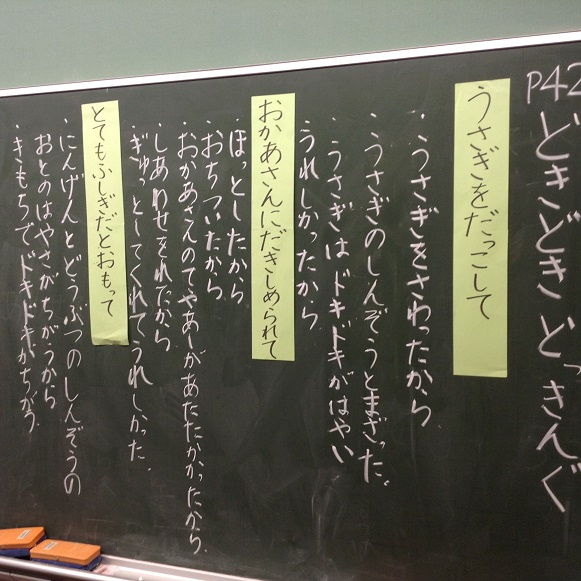 P42
どきどき どっきんぐ
うさぎをだっこして
・うさぎをさわったから
・うさぎのしんぞうとまざった。
・うさぎはドキドキがはやい
うれしかったから
おかあさんにだきしめられて
ほっとしたから
おちついたから
・おかあさんのてやあしがあたたかかったから。
・しあわせをれたから
ぎゅっとしてくれてうれしかった。
とてもふしぎだとおもって
・にんげんとどうぶつのしんぞうの
おとのはやさがちがうから
・きもちでドキドキがちがう